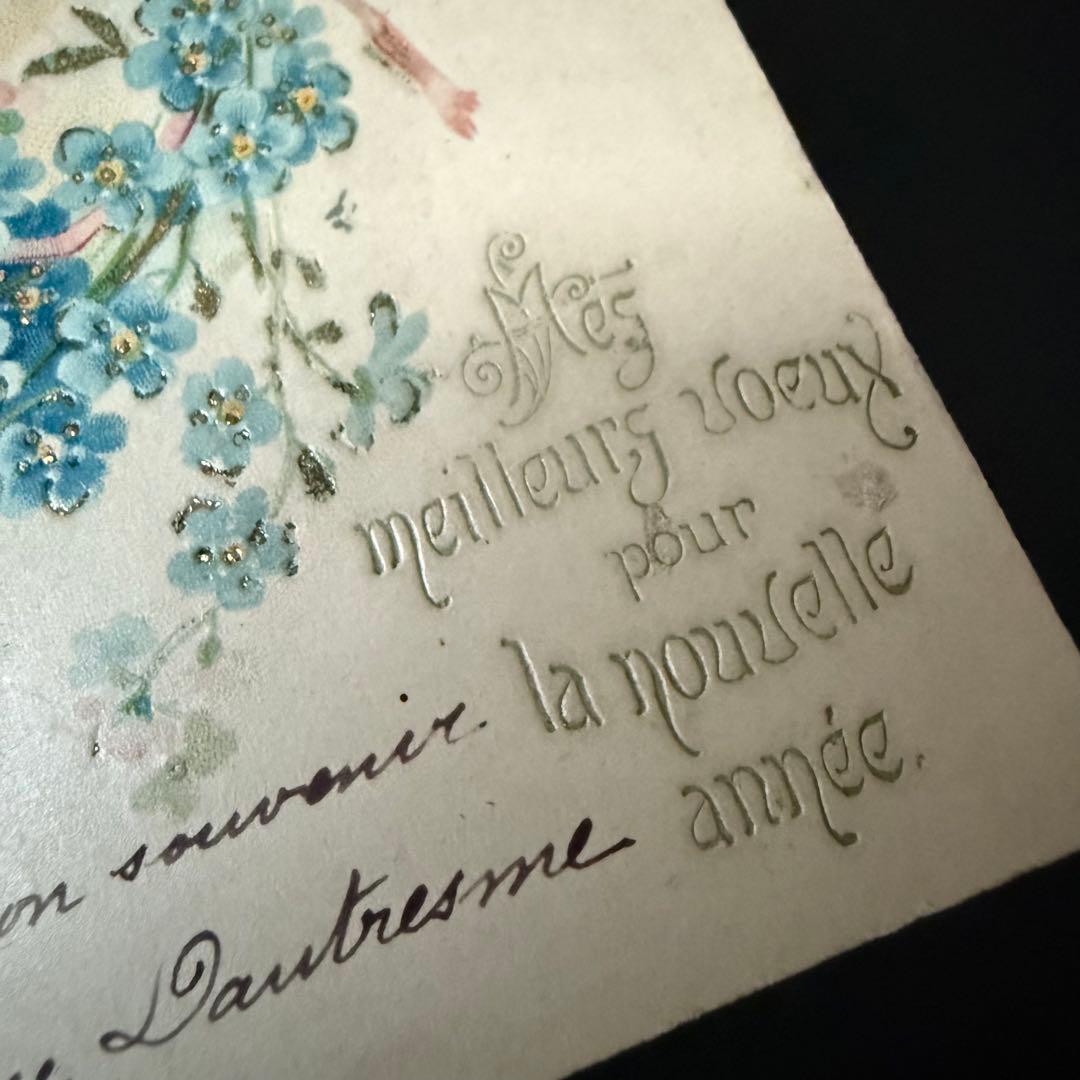 Mes
meilleurs voeux
pour
la nouvelle
année.
on souvenir
Dautresme